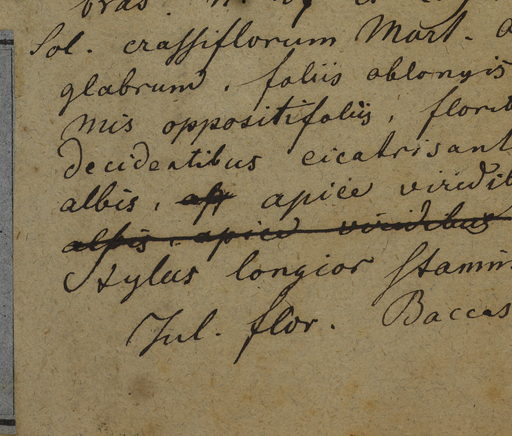 Sol. crassiflorum Mart.
glabrum. foliis oblongis
mis oppositifoliis, florib
decidentibus cicatrisant
albis, apice viridib
albis, apice viridibus
Stylus longior stamin
Jul. flor. Baccas